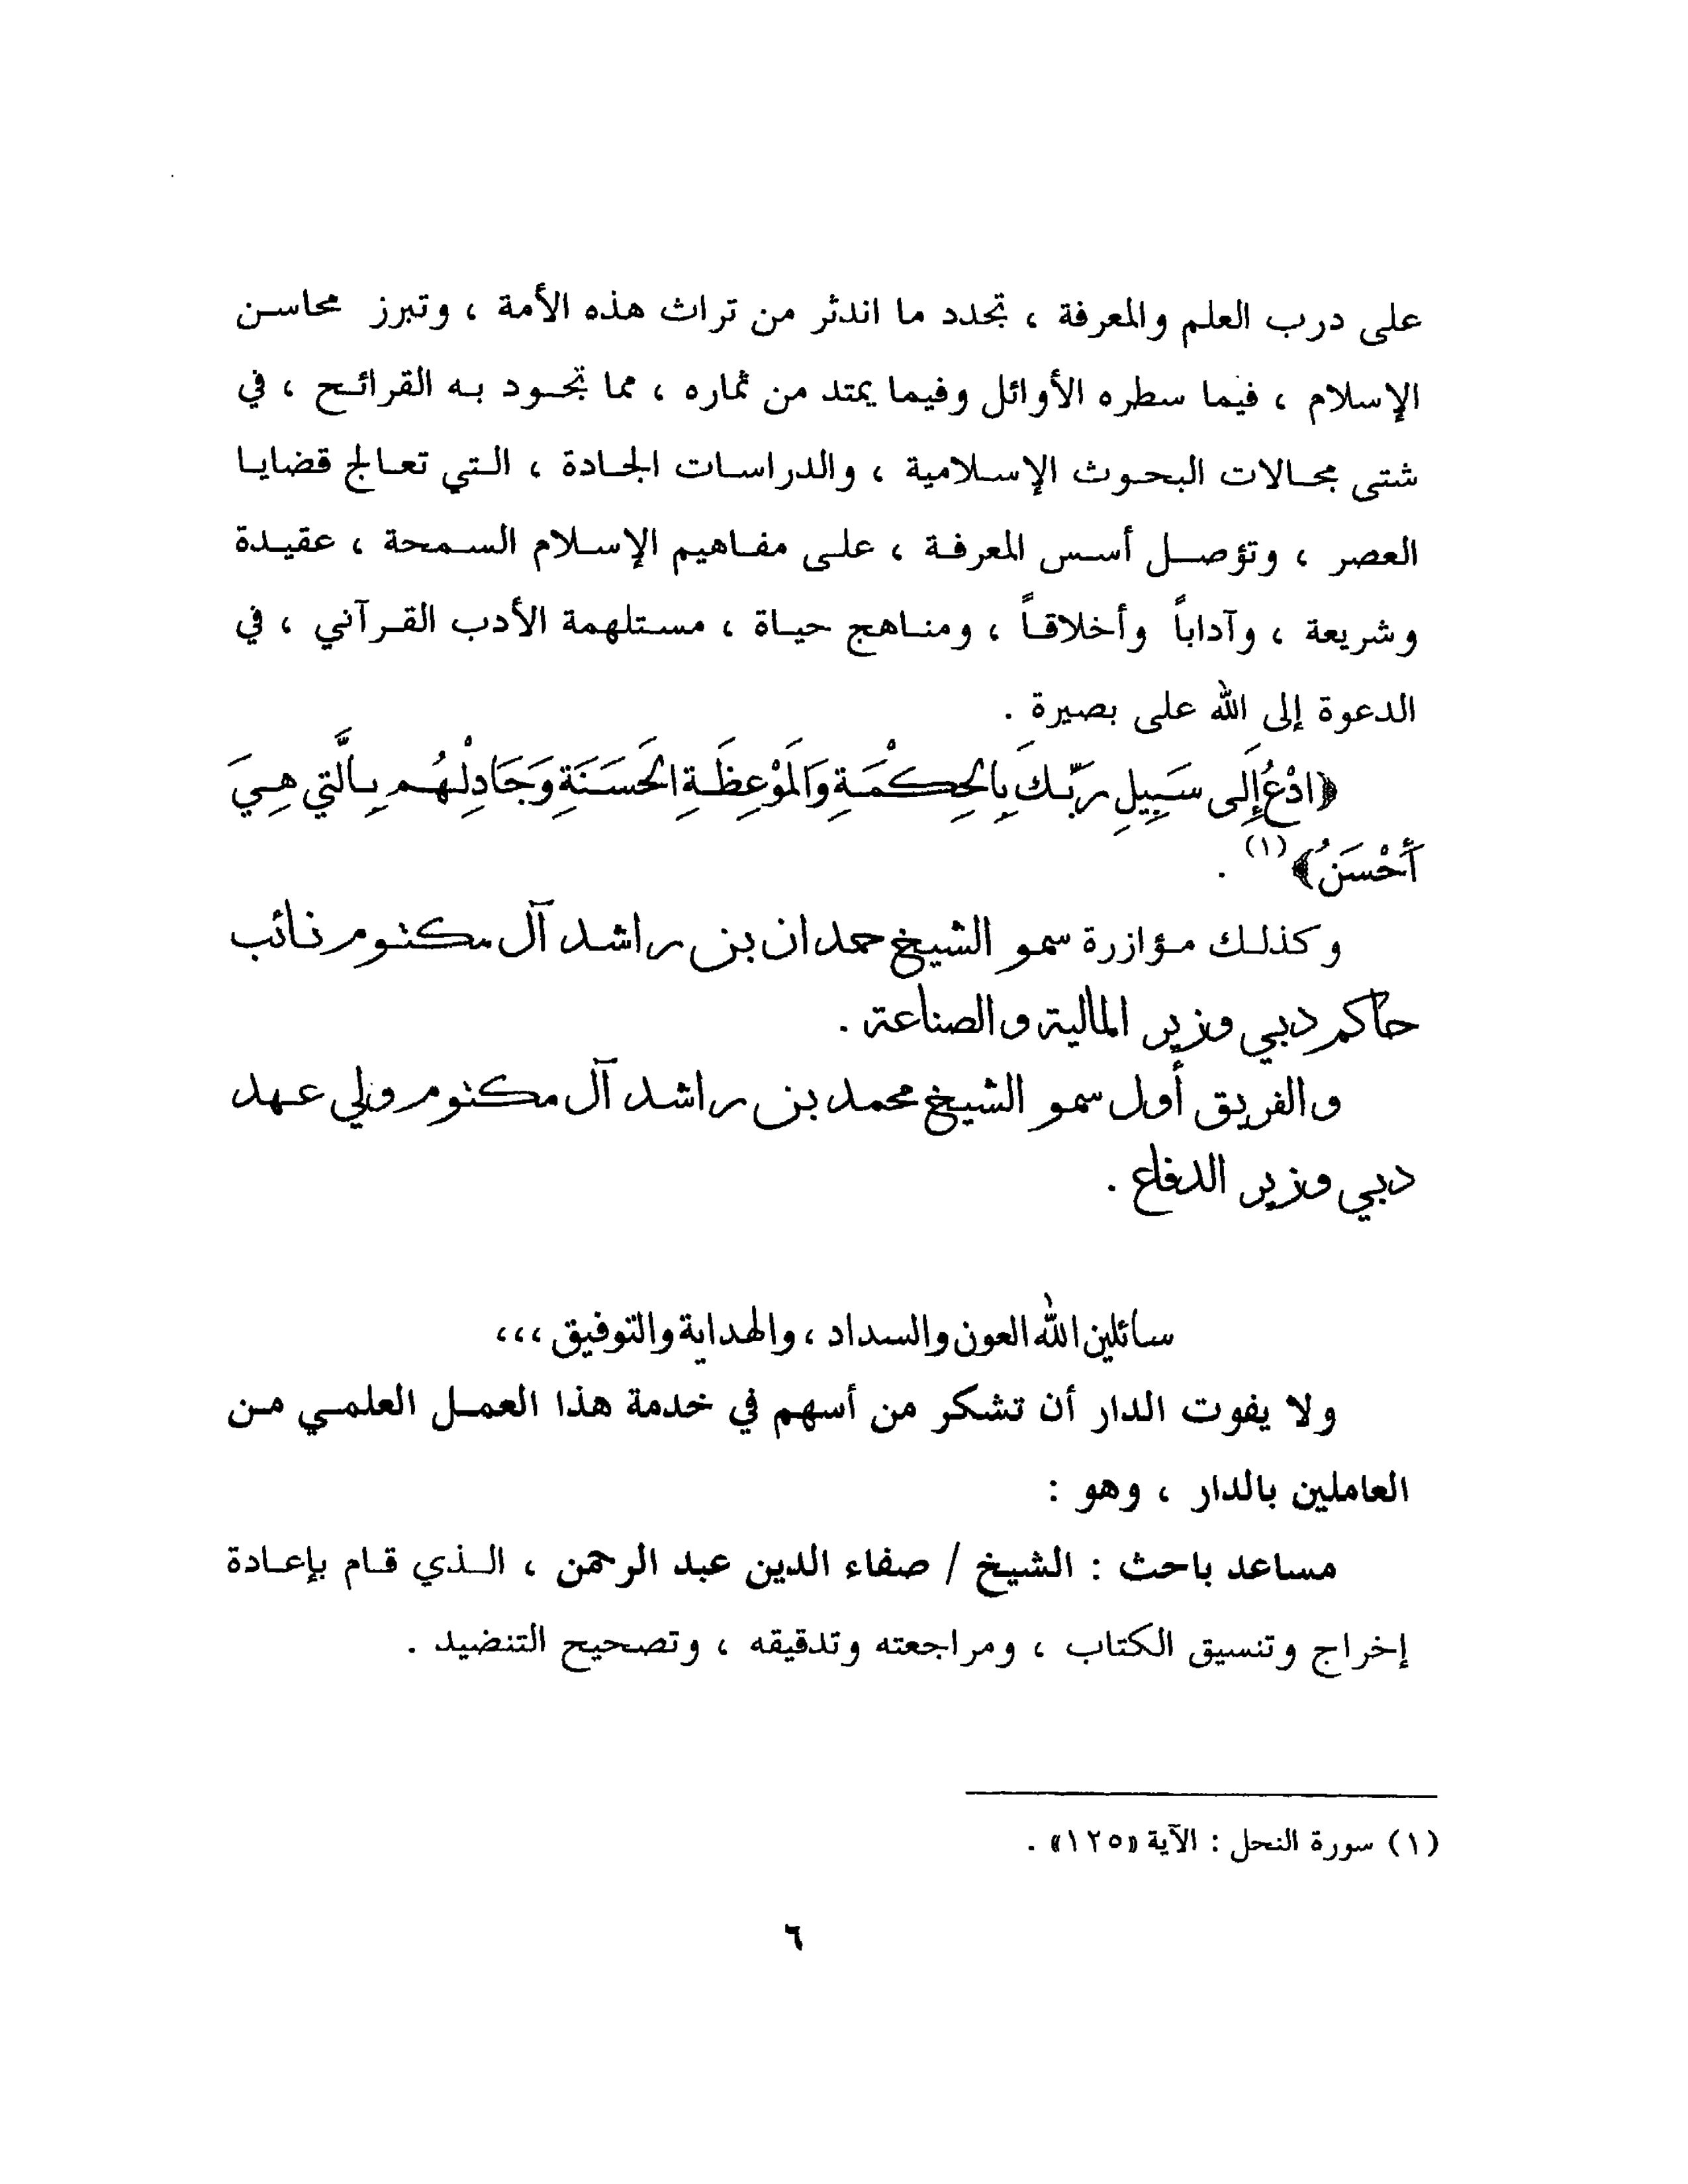 على درب العلم والمعرفة ، تجدد ما اندثر من تراث هذه الأمة ، وتبرز محاسن
الإسلام ، فيما سطره الأوائل وفيما يمتد من ثماره ، مما تجود به القرائح ، في
شتى مجالات البحوث الإسلامية ، والدراسات الجادة ، التي تعالج قضايا
العصر ، وتؤصل أسس المعرفة ، على مفاهيم الإسلام السمحة ، عقيدة
وشريعة ، وآداباً وأخلاقاً ، ومناهج حياة ، مستلهمة الأدب القرآني ، في
الدعوة إلى الله على بصيرة .
﴿ادْعُ إِلَى سَبِيلِ رَبِّكَ بِالْحِكْمَةِ وَالْمَوْعِظَةِ الْحَسَنَةِ وَجَادِلْهُم بِالَّتِي هِيَ
أَحْسَنُ﴾(١) .
وكذلك مؤازرة سمو الشيخ حمدان بن راشد آل مكتوم نائب
حاكم دبي وزير المالية والصناعة .
والفريق أول سمو الشيخ محمد بن راشد آل مكتوم ولي عهد
دبي وزير الدفاع .
سائلين الله العون والسداد ، والهداية والتوفيق ،،،
ولا يفوت الدار أن تشكر من أسهم في خدمة هذا العمل العلمي من
العاملين بالدار ، وهو :
مساعد باحث : الشيخ / صفاء الدين عبد الرحمن ، الذي قام بإعادة
إخراج وتنسيق الكتاب ، ومراجعته وتدقيقه ، وتصحيح التنضيد .
(١) سورة النحل : الآية «١٢٥» .
٦